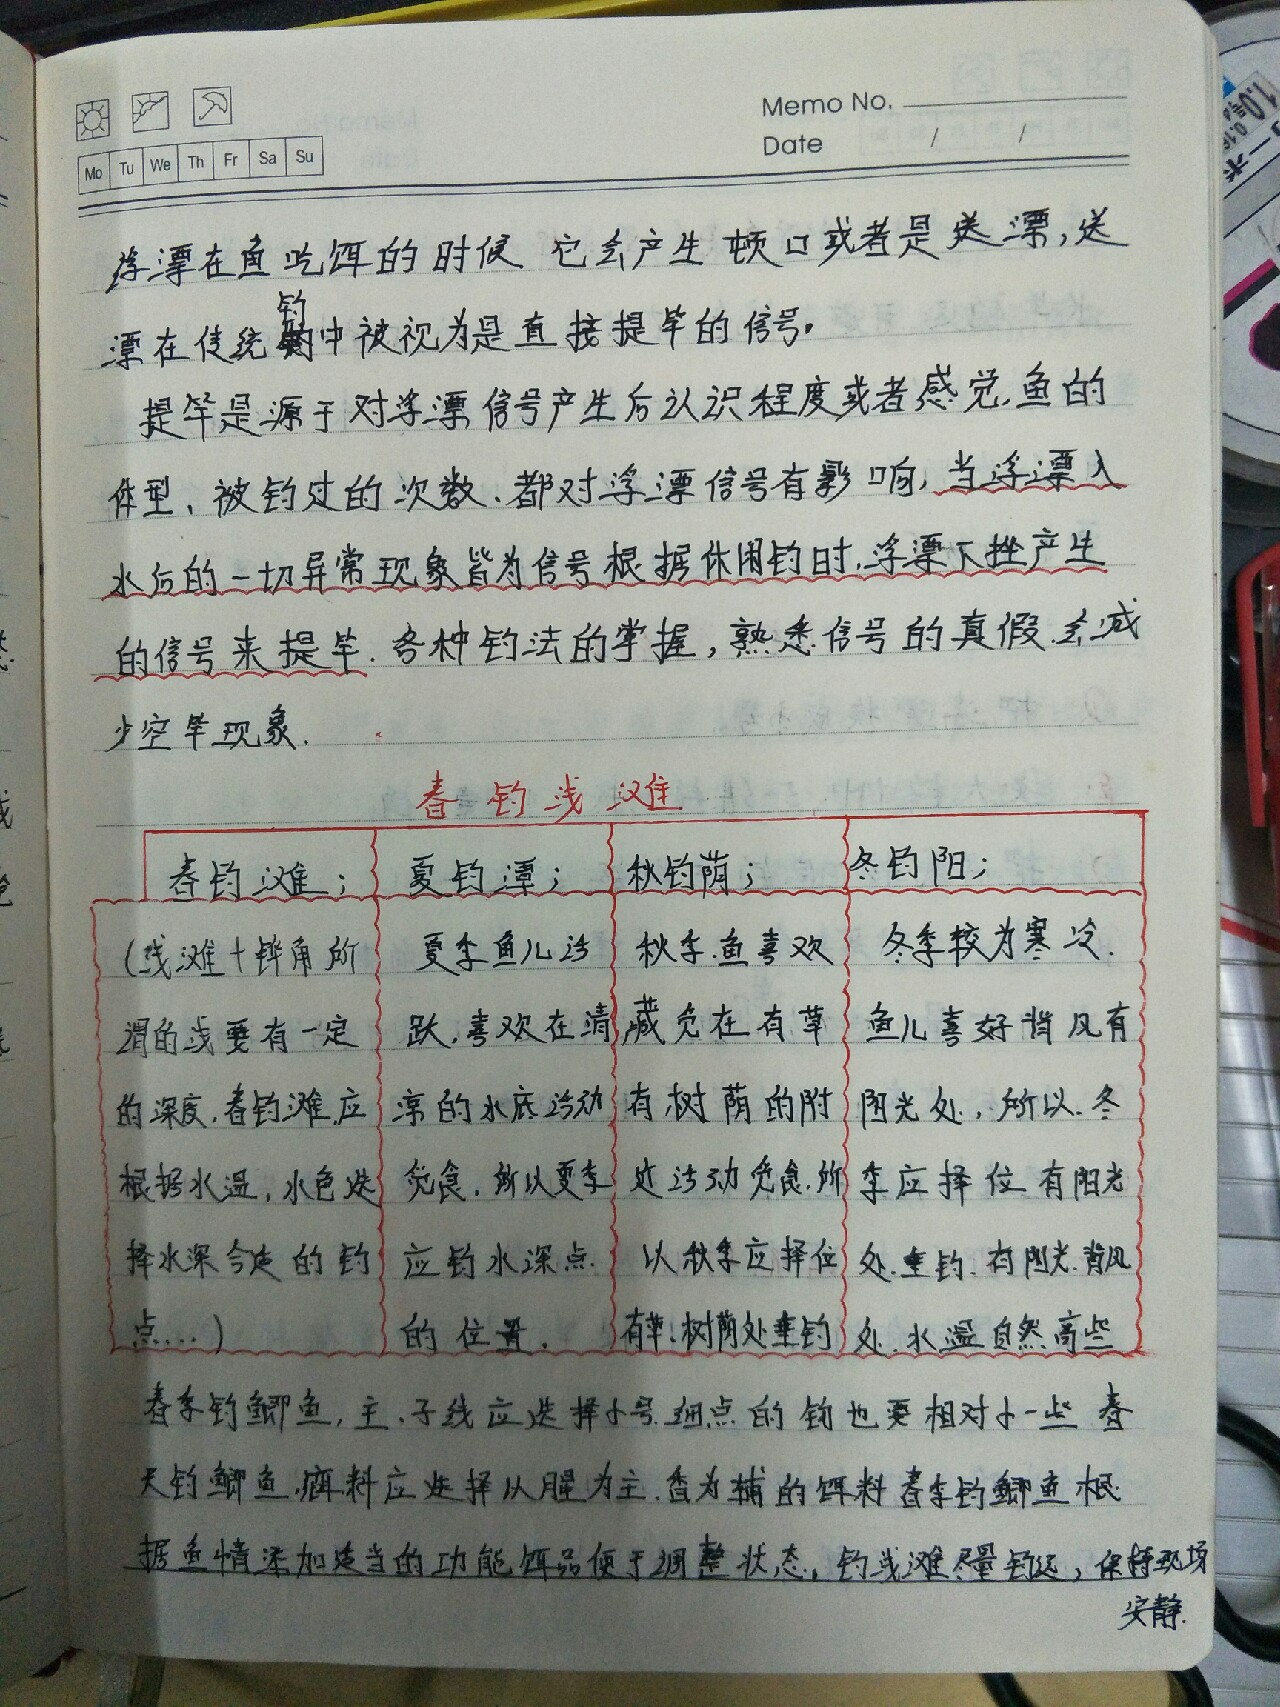 Memo No.
Date / /
Mo Tu We Th Fr Sa Su
浮漂在鱼吃饵的时候 它会产生 顿口或者是送漂，送
漂在传统钓中被视为是直接提竿的信号。
提竿是源于对浮漂信号产生后认识程度或者感觉.鱼的
体型、被钓过的次数、都对浮漂信号有影响,当浮漂入
水后的一切异常现象皆为信号根据休闲钓时,浮漂下挫产生
的信号来提竿.各种钓法的掌握，熟悉信号的真假.会减
少空竿现象.
春钓浅滩
春钓滩；
(浅滩+铧角所
谓的浅要有一定
的深度.春钓滩应
根据水温,水色选
择水深合适的钓
点....)
夏钓潭；
夏季鱼儿活
跃.喜欢在清
凉的水底活动
觅食.所以夏季
应钓水深点.
的位置.
秋钓荫；
秋季.鱼喜欢
藏觅在有草
有树荫的附
近活动觅食.所
以秋季应择位
有草.树荫处垂钓
冬钓阳；
冬季较为寒冷.
鱼儿喜好背风有
阳光处,所以.冬
季应择位有阳光
处.垂钓.有阳光.背风
处.水温自然高些
春季钓鲫鱼,主.子线应选择小号.细点的 钩也要相对小一些 春
天钓鲫鱼.饵料应选择以腥为主.香为辅的饵料春季钓鲫鱼根
据鱼情添加适当的功能饵品便于调整状态,钓浅滩尽量钓远,保持现场
安静.